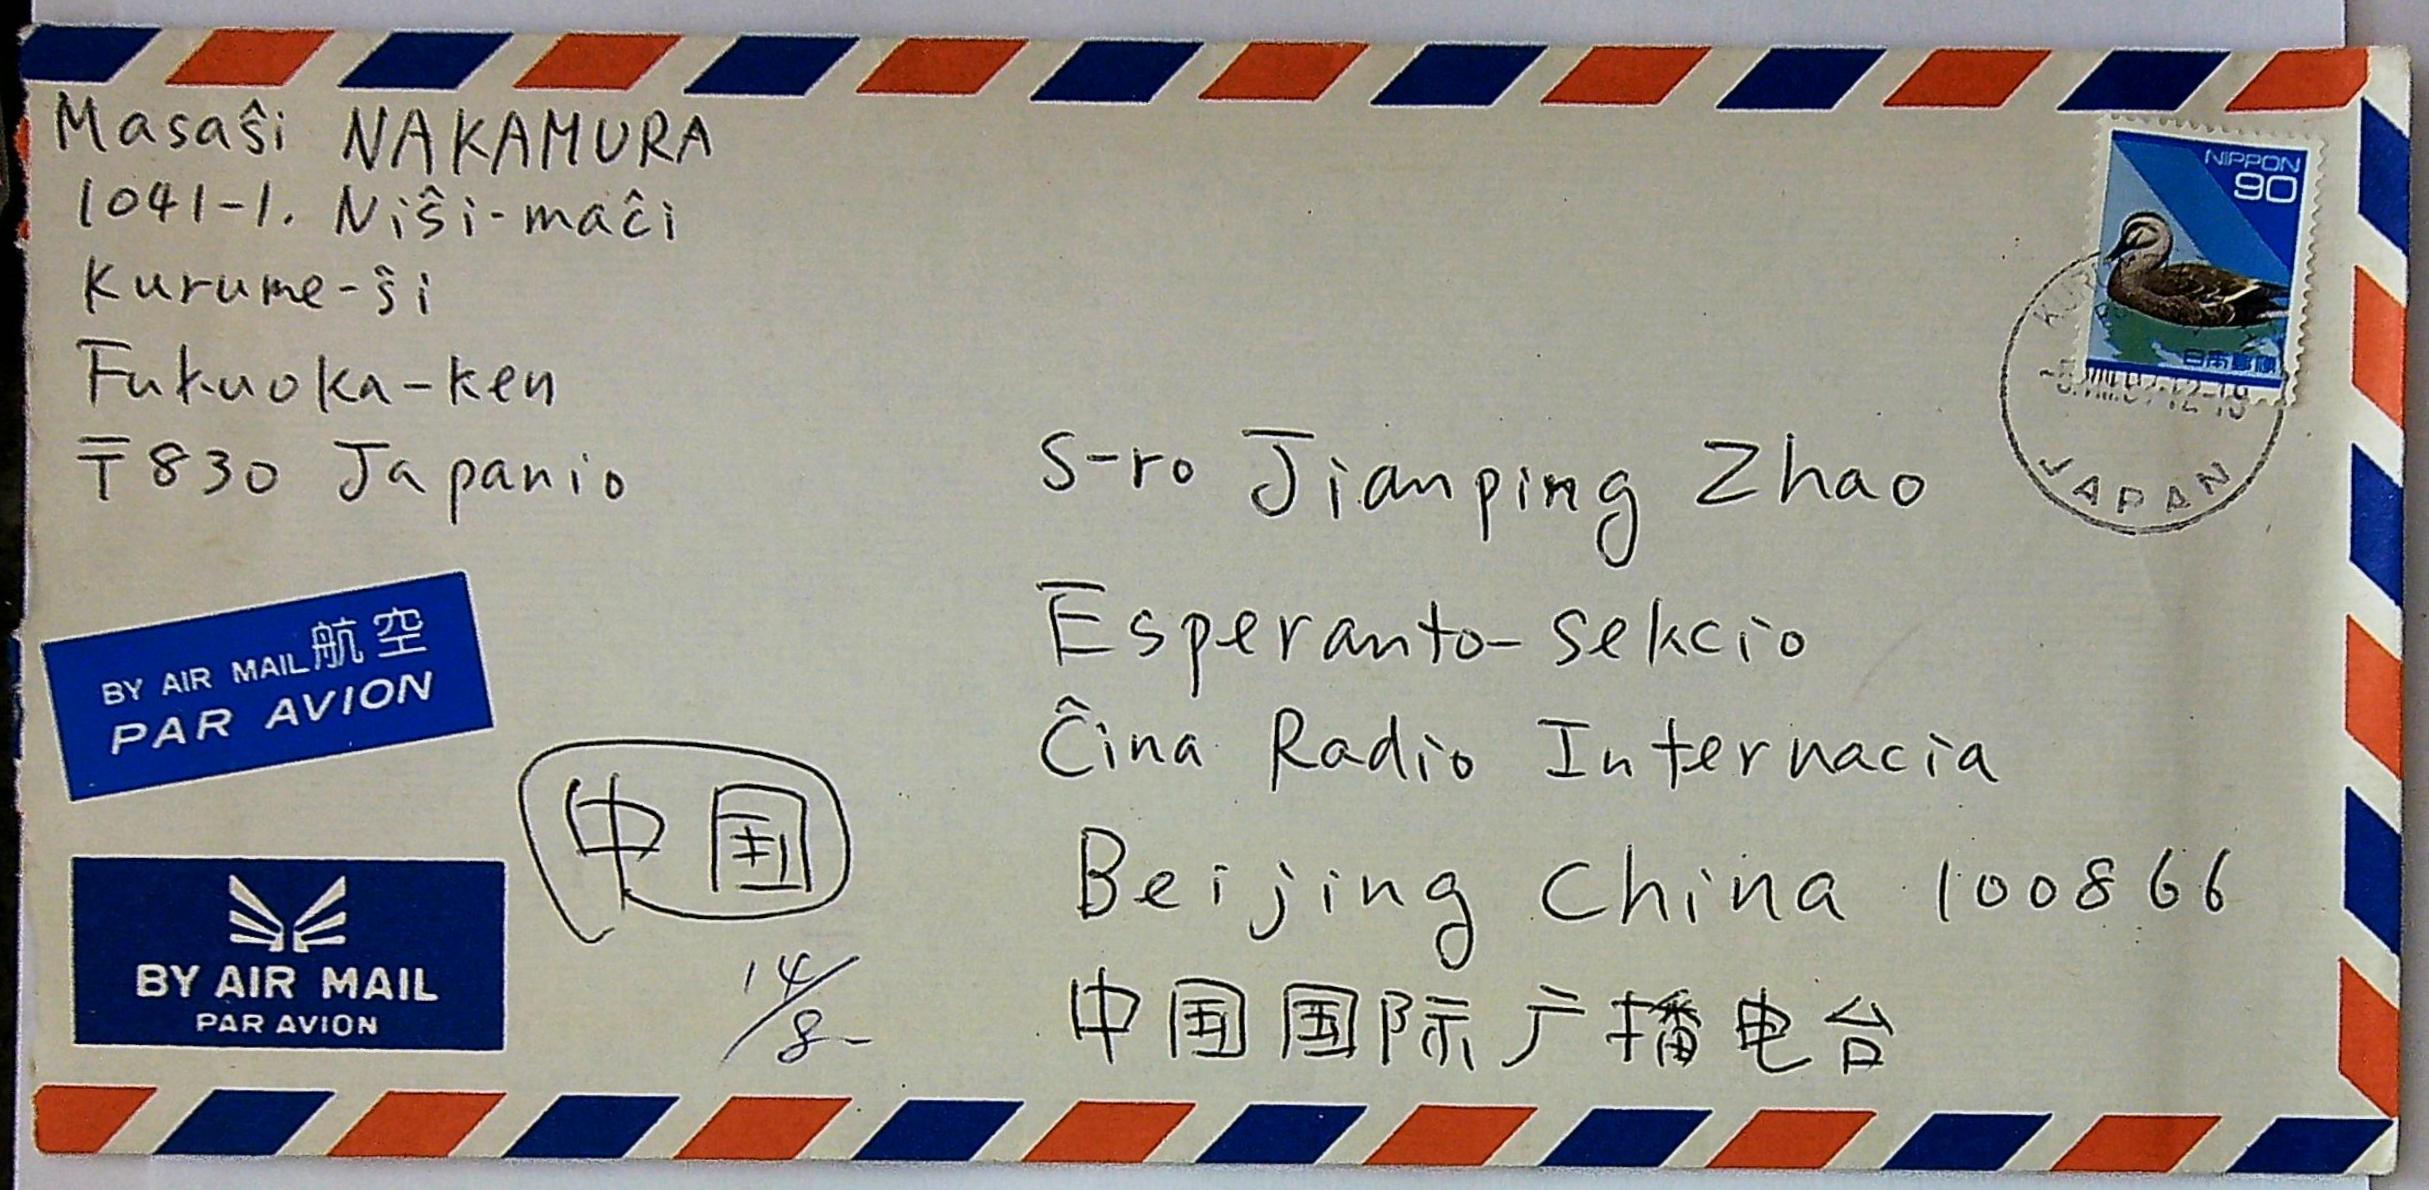 Masaŝi NAKAMURA
1041-1. Niŝi-maĉi
Kurume-ŝi
Fukuoka-ken
〒830 Japanio
NIPPON
90
日本郵便
JAPAN
S-ro Jianping Zhao
Esperanto-sekcio
Ĉina Radio Internacia
Beijing China 100866
中国国际广播电台
BY AIR MAIL 航空
PAR AVION
中国
14/8
BY AIR MAIL
PAR AVION